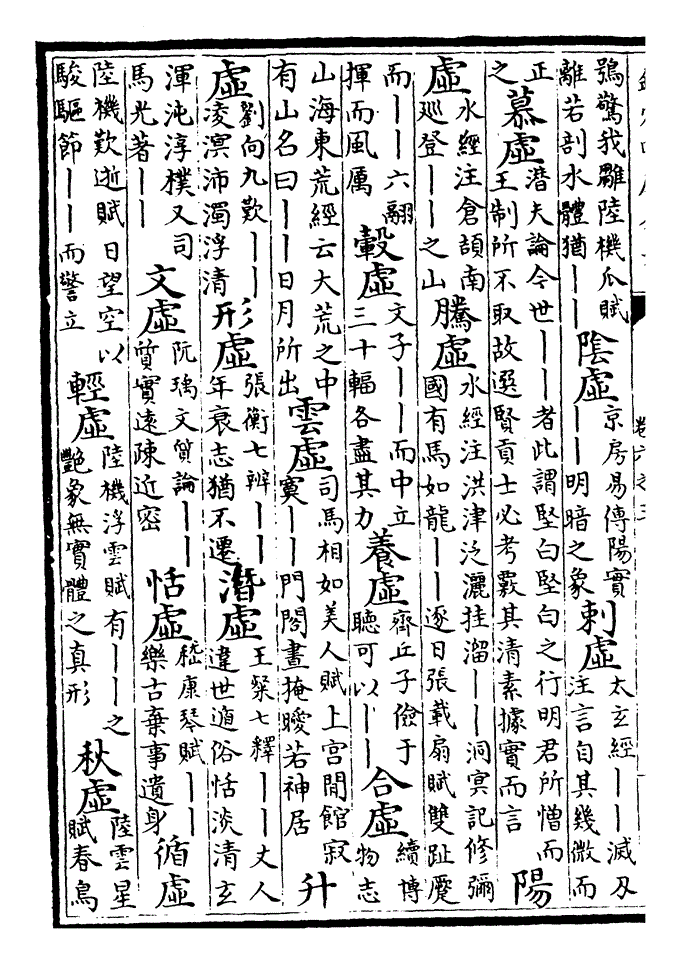 鴞驚我雛陸機瓜賦
離若剖水體猶｜｜
陰虛
京房易傳陽實
｜｜明暗之象
刺虛
太玄經｜｜滅刄
注言自其幾微而
正
之
慕虛
潛夫論今世｜｜者此謂堅白堅白之行明君所憎而
王制所不取故選賢貢士必考覈其清素據實而言
陽
虛
水經注倉頡南
巡登｜｜之山
騰虛
水經注洪津泛灑挂溜｜｜洞冥記修彌
國有馬如龍｜｜逐日張載扇賦雙趾蹙
而｜｜六翮
揮而風厲
轂虛
文子｜｜而中立
三十輻各盡其力
養虛
齊丘子儉于
聽可以｜｜
合虛
續博
物志
山海東荒經云大荒之中
有山名曰｜｜日月所出
雲虛
司馬相如美人賦上宮閒館寂
寞｜｜門閣晝掩曖若神居
升
虛
劉向九歎｜｜
凌溟沛濁浮清
形虛
張衡七辨｜｜
年衰志猶不遷
潛虛
王粲七釋｜｜丈人
違世遁俗恬淡清玄
渾沌淳樸又司
馬光著｜｜
文虛
阮瑀文質論｜｜
質實遠疎近密
恬虛
嵇康琴賦｜｜
樂古棄事遺身
循虛
陸機歎逝賦日望空以
駿驅節｜｜而警立
輕虛
陸機浮雲賦有｜｜之
艷象無實體之真形
秋虛
陸雲星
賦春鳥